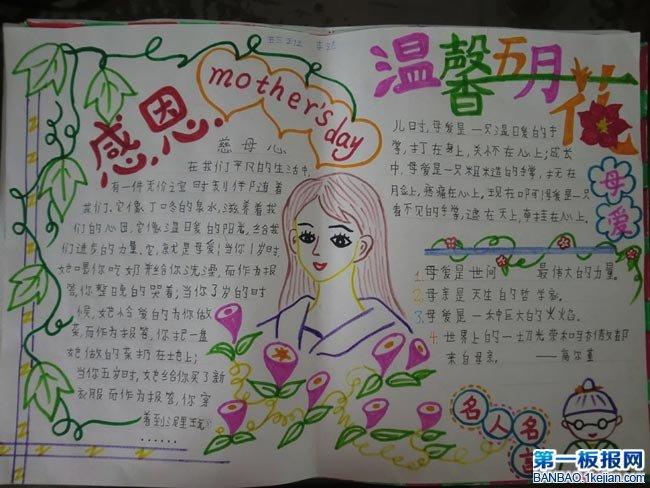 感恩.
mother's day
慈母心
在我们平凡的生活中,
有一件无价之宝时刻伴随着
我们.它像丁咚的泉水,滋养着我
们的心田,它像温暖的阳光,给我
们进步的力量.它,就是母爱;当你1岁时,
她喂你吃奶并给你洗澡,而作为报
答,你整晚的哭着;当你3岁的时
候,她怜爱的为你做
菜,而作为报答,你把一盘
她做的菜扔在地上;
当你五岁时,她给你买了新
衣服而作为报答,你穿
着到泥里玩
......
温馨五月花
儿时,母爱是一只温暖的手
掌,打在身上,关怀在心上;成长
中,母爱是一只粗糙的手掌,
疼痛在心上.
看不见的手掌,遮在天上,牵挂在心上.
母爱
1.母爱是世间 最伟大的力量。
2.母亲是天生的哲学家。
3.母爱是一种巨大的火焰。
4.世界上的一切光荣和骄傲都
来自母亲。 ——高尔基
名人名言
第一板报网
BANBAO.1kejian.com